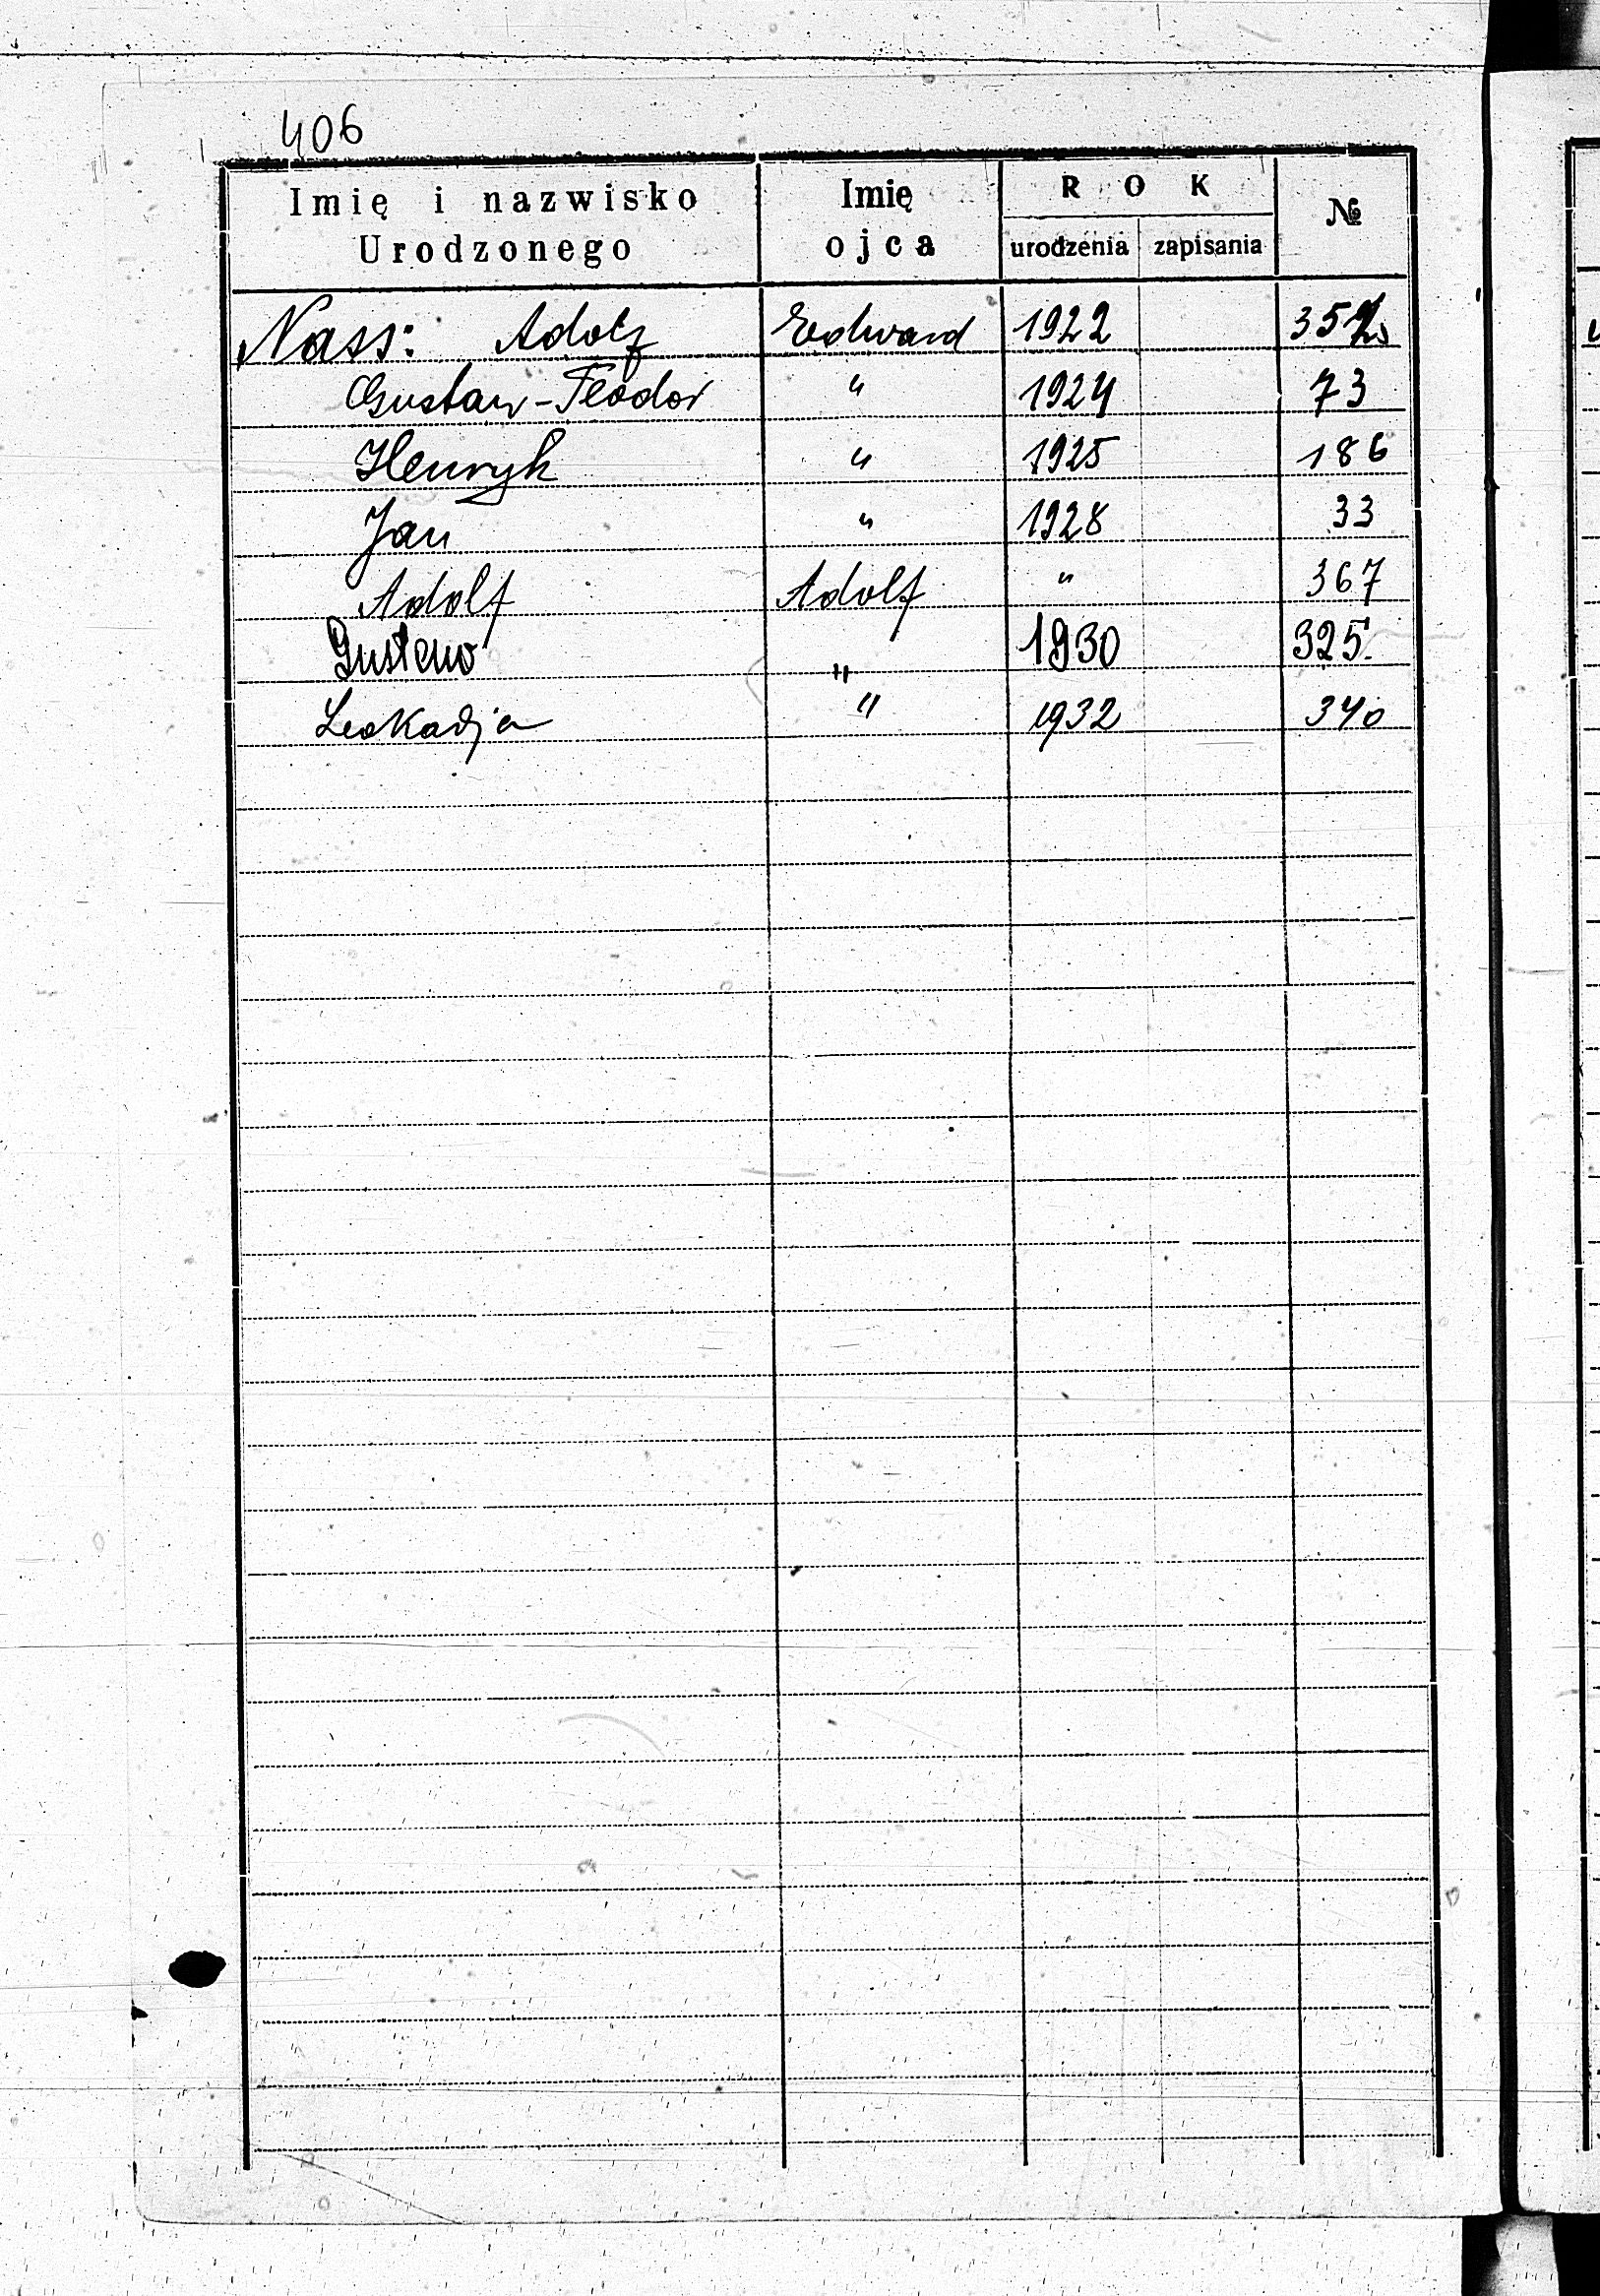 406
Imię i nazwisko Urodzonego | Imię ojca | ROK urodzenia | zapisania | №
Nass: Adolf Edward 1922
Gustaw-Teodor " 1924 73
Henryk " 1925 186
Jan " 1928 33
Adolf Adolf " 367
Gustaw " 1930 325.
Leokadja " 1932 340